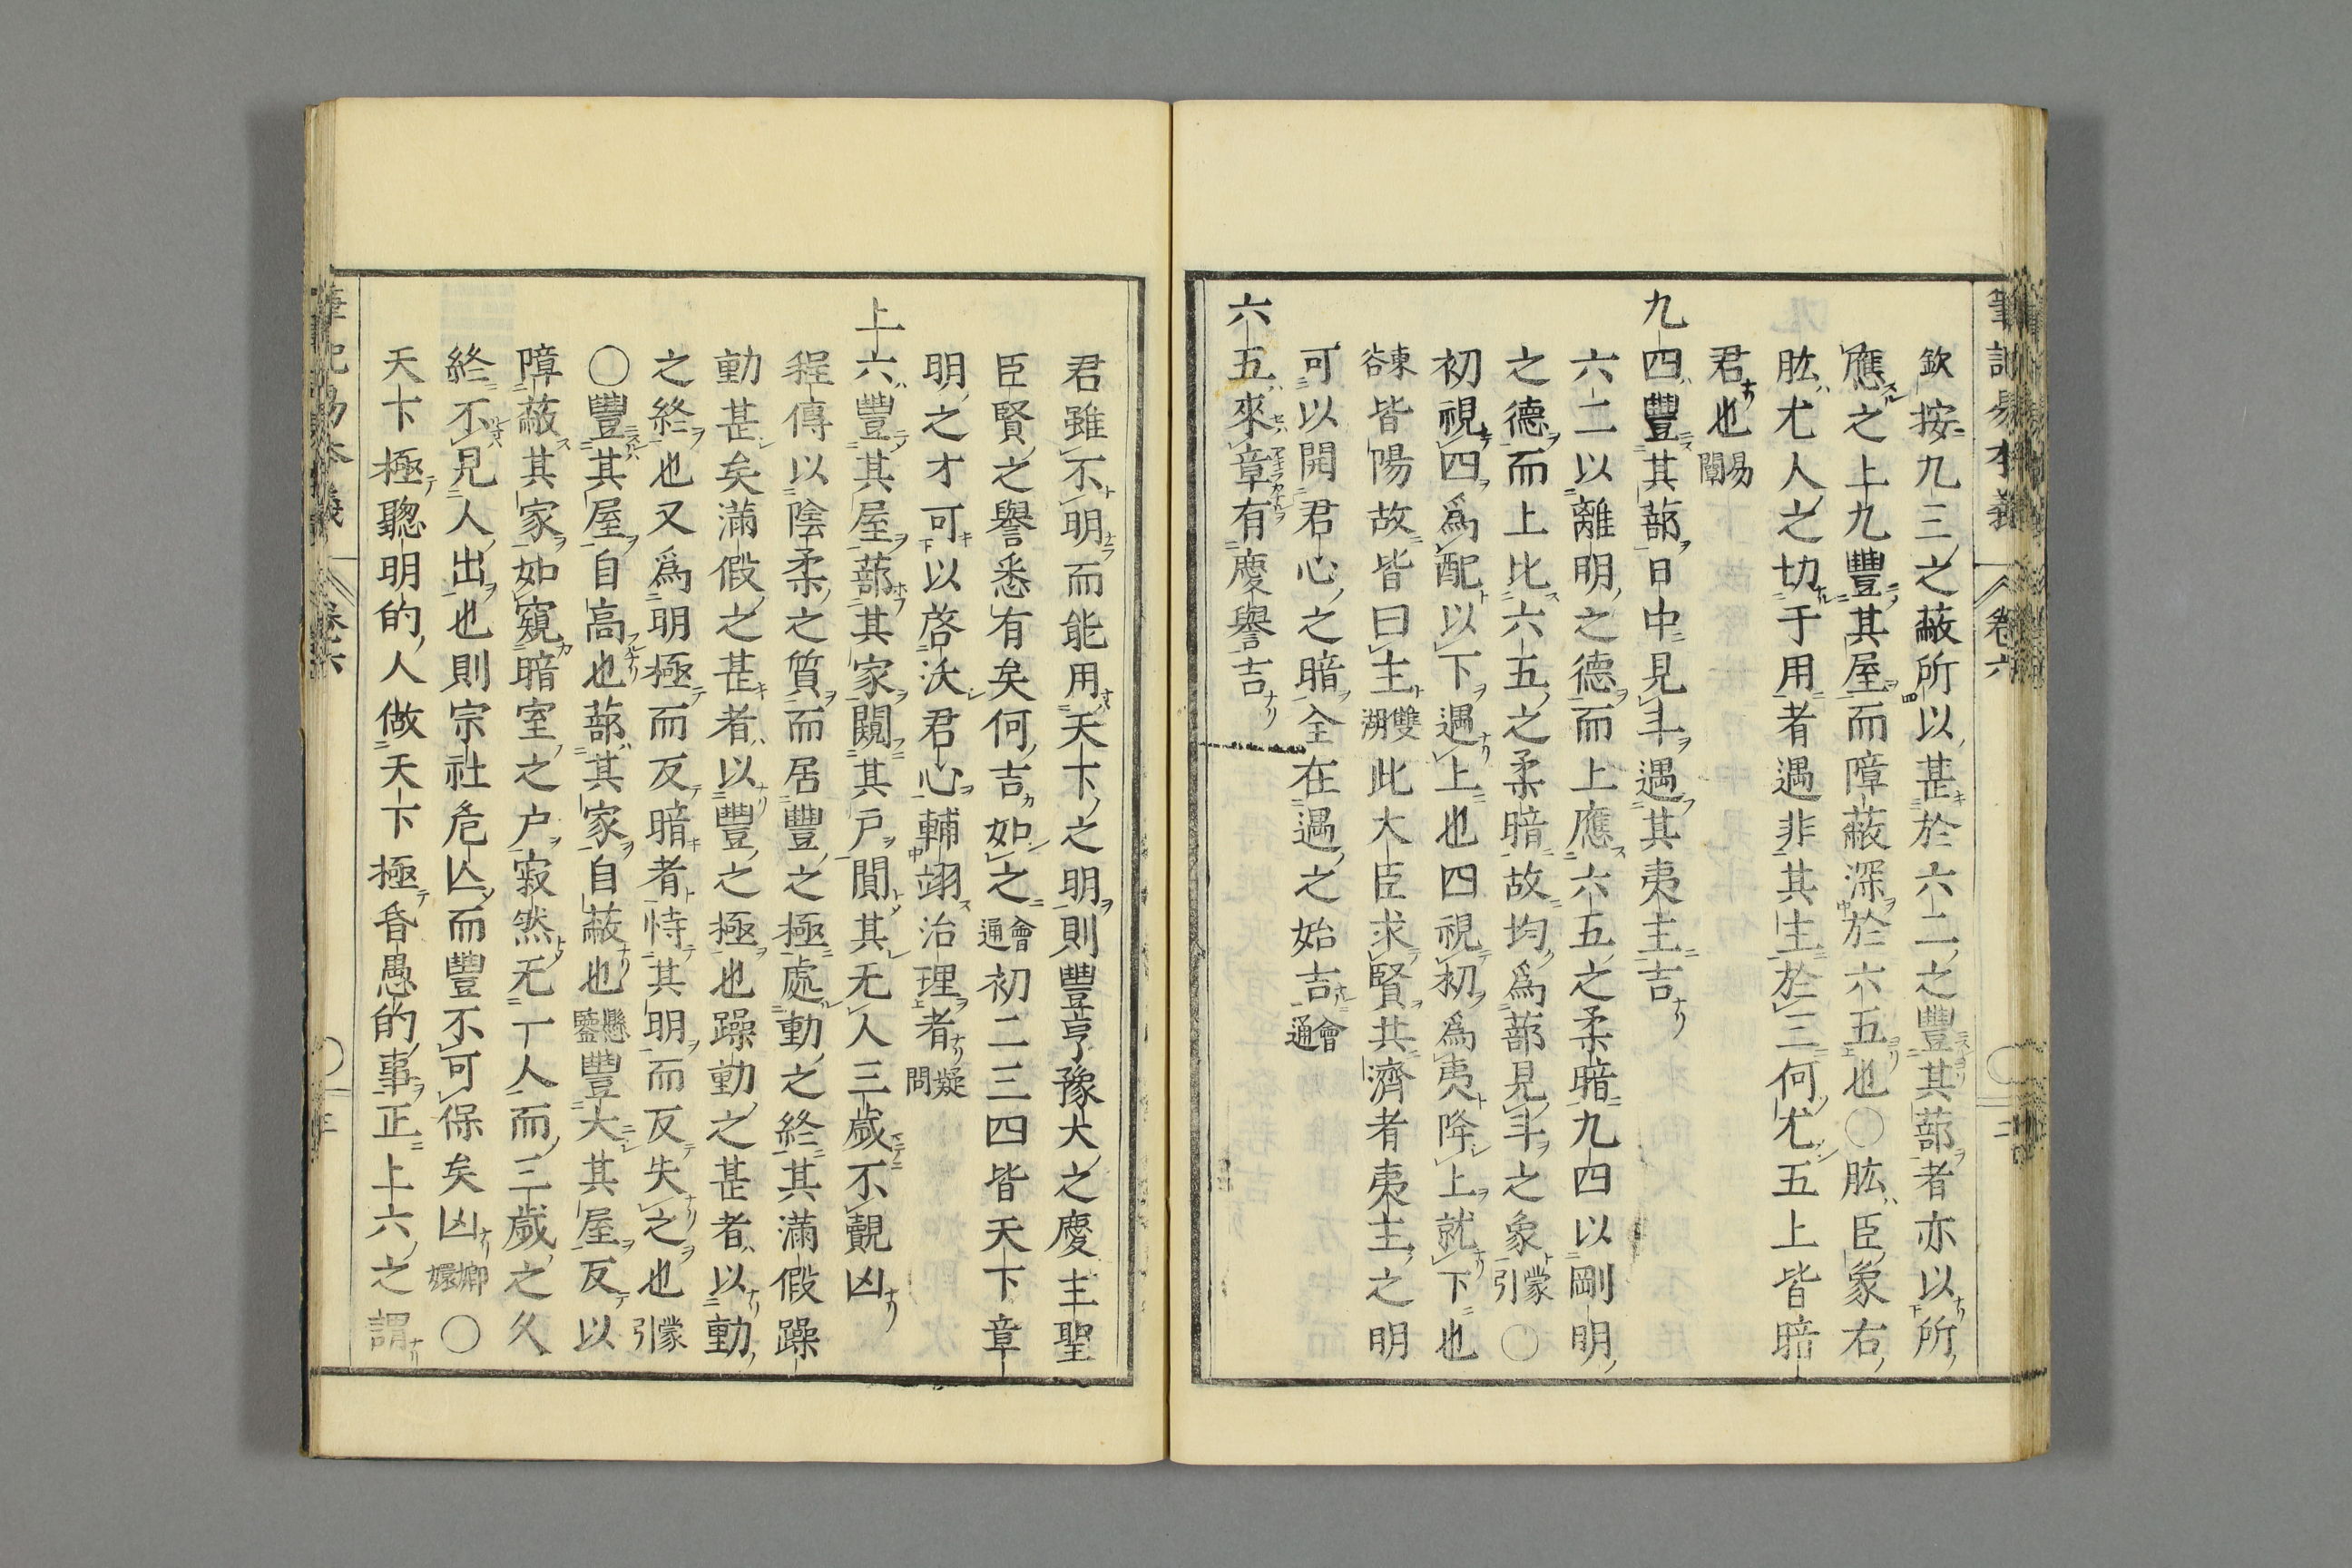 筆記易本義 卷六
欽按九三之蔽所以甚於六二之豐其蔀者亦以所
應之上九豐其屋而障蔽深於六五也○肱臣象右
肱尤人之切于用者遇非其主於三何尤五上皆暗
君也易闡
九四豐其蔀日中見斗遇其夷主吉
六二以離明之德而上應六五之柔暗九四以剛明
之德而上比六五之柔暗故均爲蔀見斗之象蒙引○
初視四爲配以下遇上也四視初爲夷降上就下也
東谷皆陽故皆曰主雙湖此大臣求賢共濟者夷主之明
可以開君心之暗全在遇之始吉會通
六五來章有慶譽吉
君雖不明而能用天下之明則豐亨豫大之慶主聖
臣賢之譽悉有矣何吉如之會通初二三四皆天下章
明之才可以啓沃君心輔翊治理者疑問
上六豐其屋蔀其家闚其戶闃其无人三歲不覿凶
程傳以陰柔之質而居豐之極處動之終其滿假躁
動甚矣滿假之甚者以豐之極也躁動之甚者以動
之終也又爲明極而反暗者恃其明而反失之也蒙引
○豐其屋自高也蔀其家自蔽也懸鑒豐大其屋反以
障蔽其家如窺暗室之户寂然无一人而三歲之久
終不見人出也則宗社危亾而豐不可保矣凶○
天下極聰明的人做天下極昏愚的事正上六之謂
卷六